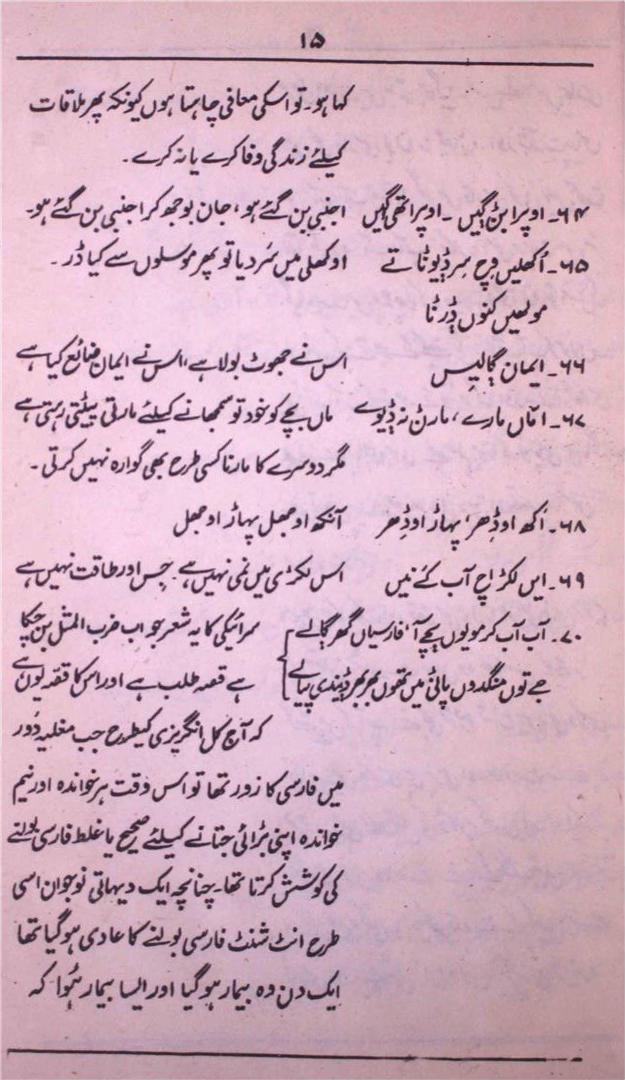 ۱۵
کہا ہو۔ تو اسکی معافی چاہتا ہوں کیونکہ پھر ملاقات
کیلئے زندگی وفا کرے یا نہ کرے۔
۶۴۔ اوپرا بݨ ڳیں ۔ اوپرا تھی ڳیں اجنبی بن گئے ہو، جان بوجھ کر اجنبی بن گئے ہو۔
۶۵۔ اُکھلیں وچ سِر ڈیوݨا تے اوکھلی میں سَر دیا تو پھر موسلوں سے کیا ڈر۔
موہلیں کنوں ڈرنا
۶۶۔ ایمان ڳالیس اس نے جھوٹ بولا ہے، اس نے ایمان ضائع کیا ہے
۶۷۔ اماں مارے، مارݨ نہ ڈیوے ماں بچے کو خود تو سمجھانے کیلئے مارتی پیٹتی رہتی ہے
مگر دوسرے کا مارنا کسی طرح بھی گوارہ نہیں کرتی۔
۶۸۔ اکھ اوڈھر، پہاڑ اوڈھر آنکھ اوجھل پہاڑ اوجھل
۶۹۔ ایں لکڑ اچ آب کئے نیں اس لکڑی میں نمی نہیں ہے۔ جس اور طاقت نہیں ہے
۷۰۔ آب آب کر مویوں بچڑا فارسیاں گھر گالے سرائیکی کا یہ شعر جو اب ضرب المثل بن چکا
جے توں منگدوں پاݨی میں تھوں بھر بھر ڈیندی پیالے ہے قصہ طلب ہے اور اس کا قصہ یوں ہے
کہ آج کل انگریزی کیطرح جب مغلیہ دَور
میں فارسی کا زور تھا تو اس وقت ہر خواندہ اور نیم
خواندہ اپنی بڑائی جتانے کیلئے صحیح یا غلط فارسی بولنے
کی کوشش کرتا تھا۔ چنانچہ ایک دیہاتی نوجوان اسی
طرح انٹ شنٹ فارسی بولنے کا عادی ہو گیا تھا
ایک دن وہ بیمار ہو گیا اور ایسا بیمار ہُوا کہ